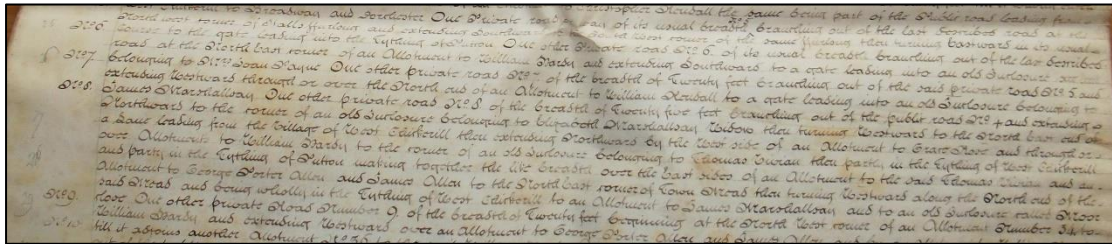 West Chickerill to Broadway and Dorchester One Private road Christopher Kendall the same being part of the Public road leading from
No 6. North west corner of Halls furlong and extending Southward to the South west corner of the same furlong then turning Eastward in its usual
course to the gate leading into the Tything of Putton One other Private road No 6. of its usual breadth branching out of the last described
road at the North East corner of an Allotment to William Hardy and extending Southwards to a gate leading into an old Inclosure
No 7. belonging to Mrs Joan Payne One other private road No 7 of the breadth of Twenty feet branching out of the said private road No 5 and
extending Westward through or over the North end of an Allotment to William Kendall to a gate leading into an old Inclosure belonging to
No 8. James Marshallsay. One other private road No 8 of the breadth of Twenty five feet branching out of the public road No 4 and extending
Northwards to the corner of an old Inclosure belonging to Elizabeth Marshallsay Widow then turning Westwards to the North East end of
a Lane leading from the Village of West Chickerill then extending Northward by the West side of an Allotment to Grace Roper and through or
over Allotments to William Hardy to the corner of an old Inclosure belonging to Thomas Vivian then partly in the Tything of West Chickerill
and partly in the Tything of Putton making together the like breadth over the East sides of an Allotment to the said Thomas Vivian and an
Allotment to George Porter Allen and James Allen to the North East corner of Town Mead then turning Westward along the North end of the
said Mead and being wholly in the Tything of West Chickerill to an Allotment to James Marshallsay and to an old Inclosure called Moor
No 9. close. One other private Road Number 9. of the breadth of Twenty feet beginning at the North West corner of an Allotment Number 54 to
No 10. William Hardy and extending Westward over an Allotment to George Porter Allen and James Allen and
till it adjoins another Allotment No 56 to the